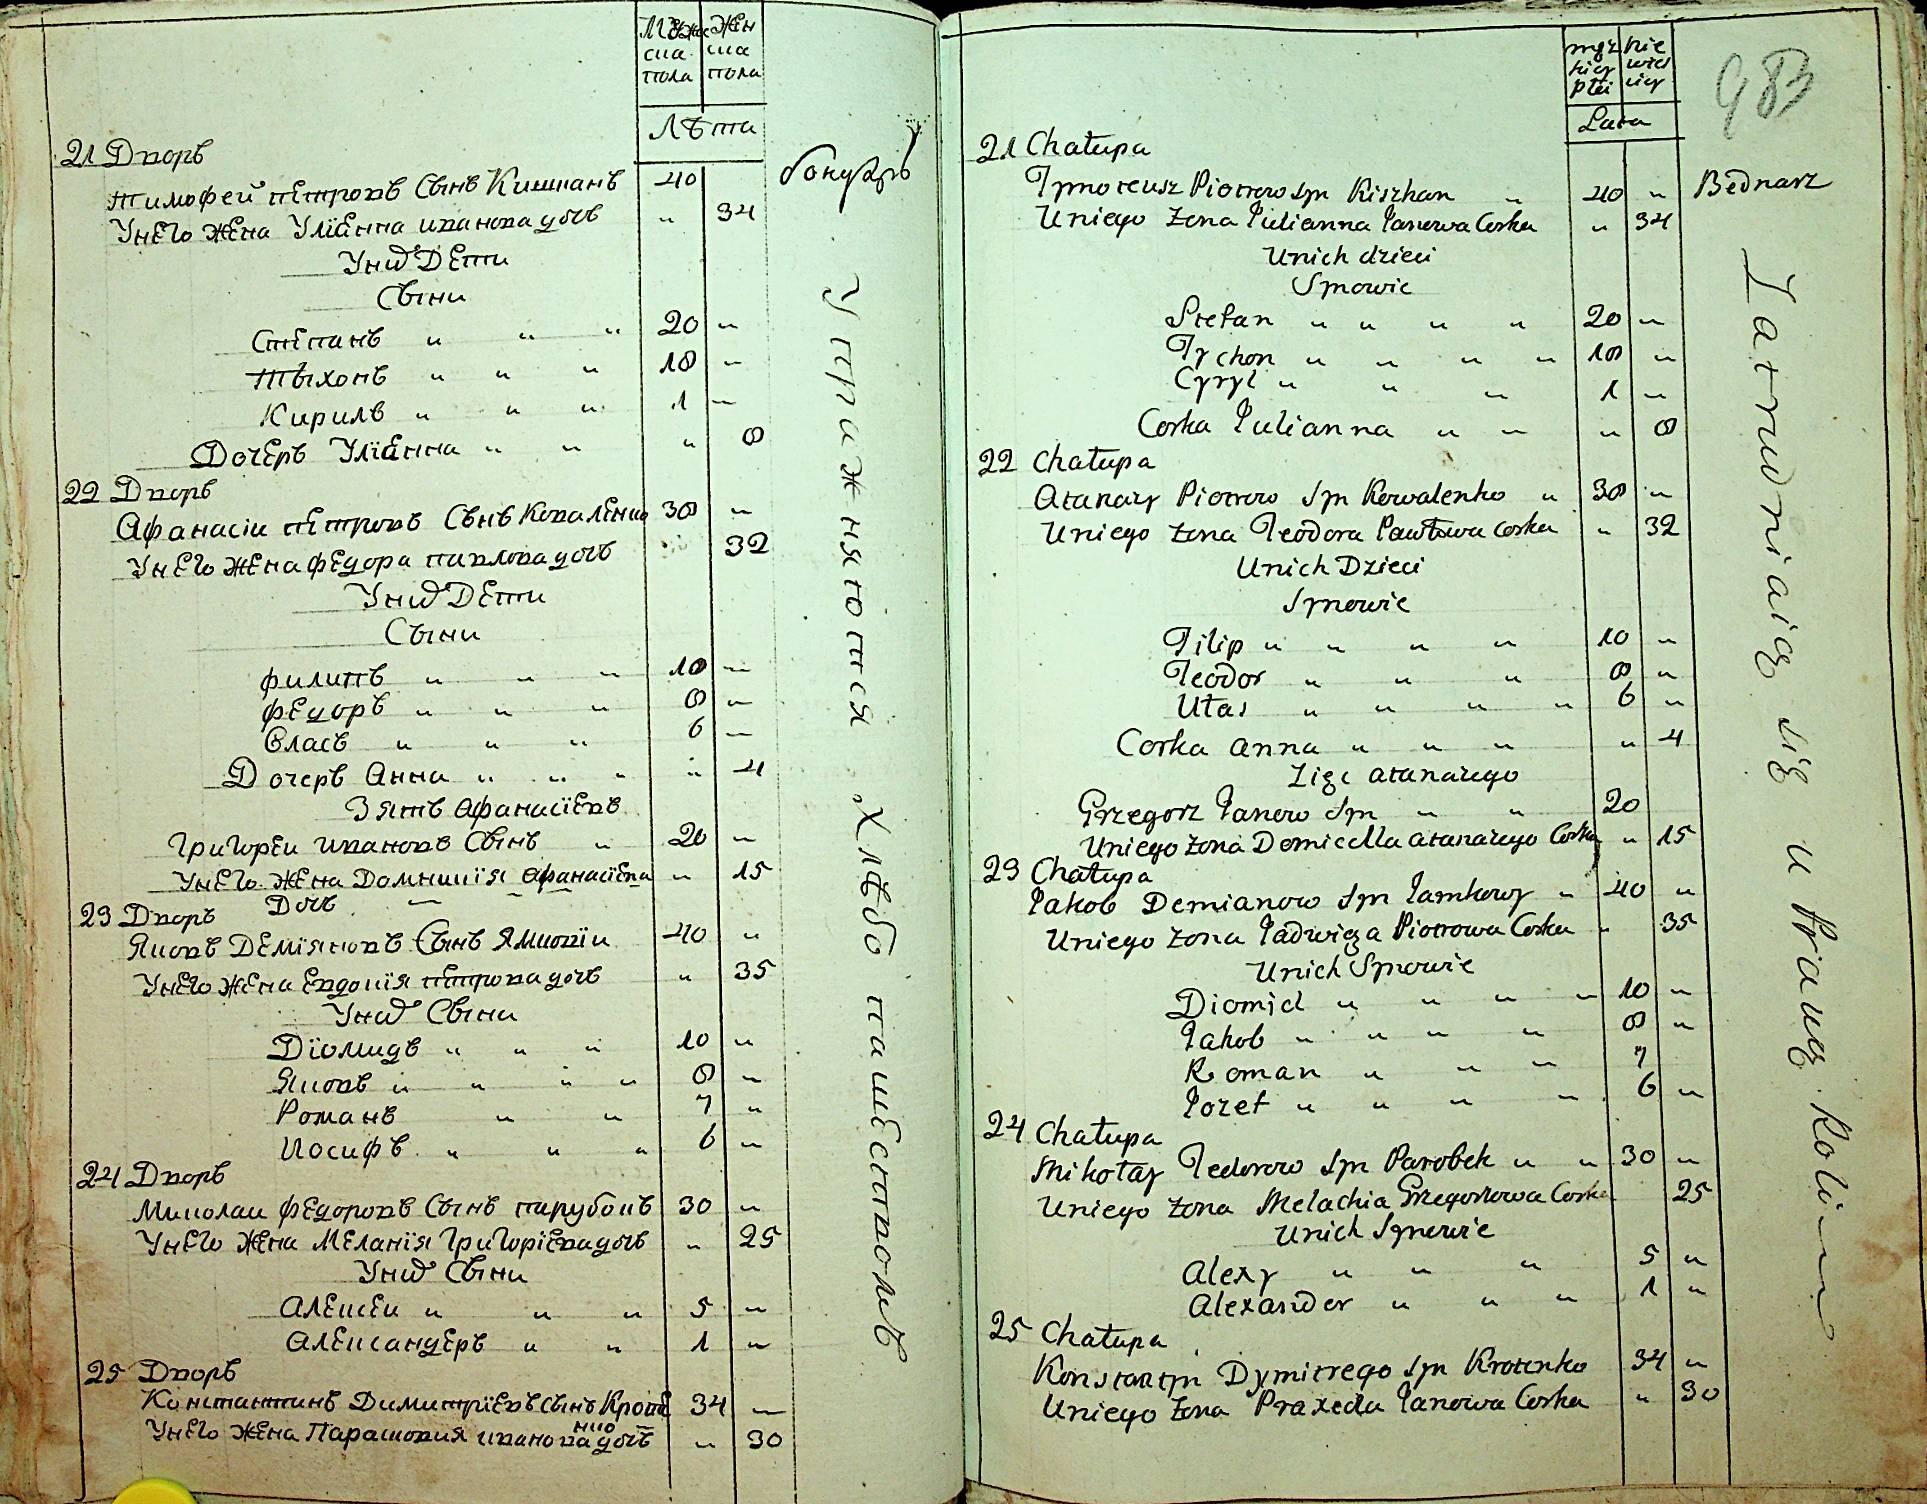 Мужеска пола Женска пола
Лѣта
21 Дворъ
Тимофей Петровъ Сынъ Кишканъ 40 бондаръ
У него жена Уліанна Иванова дочь „ 34
У них Дети
Сыни
Степанъ „ „ „ 20 „
Тыхонъ „ „ „ 18 „
Кирилъ „ „ „ 1 „
Дочеръ Уліанна „ „ „ 8
22 Дворъ
Афанасіи Петровъ Сынъ Коваленко 38 „
У него жена Федора Павлова дочь 32
У них Дети
Сыни
Филипъ „ „ „ 10 „
Федоръ „ „ „ 8 „
Власъ „ „ „ 6 „
Дочеръ Анна „ „ „ „ 4
Зять Афанасіевъ
Григореи Ивановъ Сынъ „ 20 „
У него жена Домникія Афанасіева „ 15
Дочь
23 Дворъ
Яковъ Деміяновъ Сынъ Ямковіи 40 „
У него жена Евдокія Петрова дочь „ 35
У них Сыни
Діомидъ „ „ „ 10 „
Яковъ „ „ „ „ 8 „
Романъ „ „ 7 „
Иосифъ „ „ „ 6 „
24 Дворъ
Миколаи Федоровъ Сынъ Парубокъ 30 „
У него жена Меланія Григоріева дочь „ 25
У них Сыни
Алексеи „ „ „ 5 „
Александеръ „ „ 1 „
25 Дворъ
Константинъ Димитріевъ сынъ Кроте 34 „
нко
У него жена Парасковия Иванова дочь „ 30
Упражняются Хлебопашествомъ
męzkiey płci niewieściey
983
Lata
21 Chałupa
Tymoteusz Piotrow syn Kiszkan „ 40 „ Bednarz
U niego żona Julianna Janowa Corka „ 34
U nich dzieci
Synowie
Stefan „ „ „ „ 20 „
Tychon „ „ „ „ 18 „
Cyryl „ „ „ 1 „
Corka Julianna „ „ „ 8
22 Chałupa
Atanazy Piotrow syn Kowalenko „ 38 „
U niego żona Teodora Pawłowa corka „ 32
U nich Dzieci
Synowie
Filip „ „ „ „ 10 „
Teodor „ „ „ 8 „
Ułas „ „ „ „ 6 „
Corka Anna „ „ „ „ 4
Zięć Atanazego
Grzegorz Janow syn „ „ 20
U niego żona Domicella Atanazego Corka „ 15
23 Chałupa
Jakob Demianow syn Jamkowy „ 40 „
U niego żona Jadwiga Piotrowa Corka „ 35
U nich Synowie
Diomid „ „ „ „ 10 „
Jakob „ „ „ „ 8 „
Roman „ „ „ 7
Jozef „ „ „ „ 6 „
24 Chałupa
Mikołay Fedorow syn Parobek „ „ 30 „
U niego żona Melachia Grzegorzowa Corka 25
U nich Synowie
Alexy „ „ „ 5 „
Alexander „ „ „ 1 „
25 Chałupa
Konstantyn Dymitrego syn Krotenko 34 „
U niego żona Praxeda Janowa Corka „ 30
Zatrudniaią się u Pracuą Roli